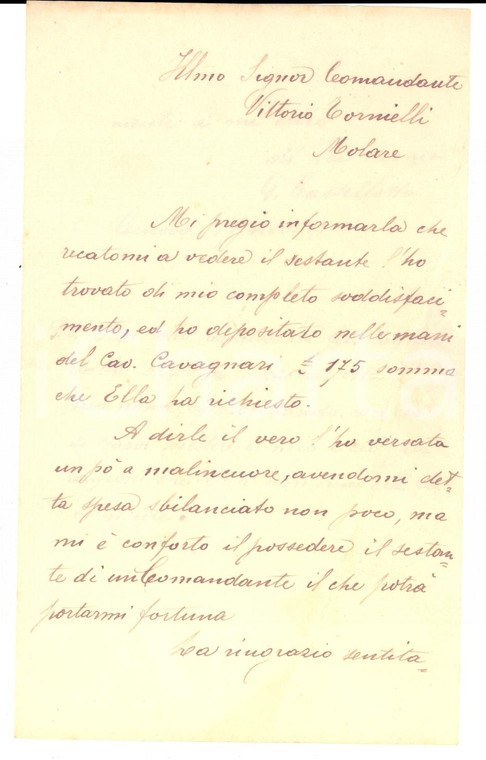 Illmo Signor Comandante
Vittorio Cornielli
Molare
Mi pregio informarla che
recatomi a vedere il sestante l'ho
trovato di mio completo soddisfaci=
mento, ed ho depositato nelle mani
del Cav. Cavagnari £ 175 somma
che Ella ha richiesto.
A dirle il vero l'ho versata
un pò a malincuore, avendomi det=
ta spesa sbilanciato non poco, ma
mi è conforto il possedere il sestan=
te di un Comandante il che potrà
portarmi fortuna
La ringrazio sentita=